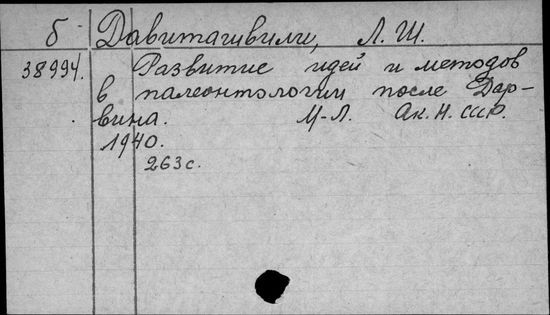 б Давиташвили, Л. Ш.
38994. Развитие идей и методов
в палеонтологии после Дар-
вина. М-Л. Ак. Н. СССР.
1940.
263 с.